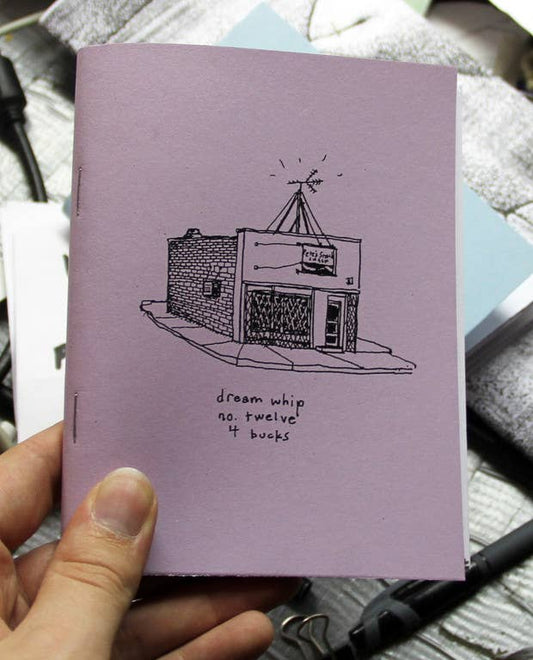 dream whip
no. twelve
4 bucks